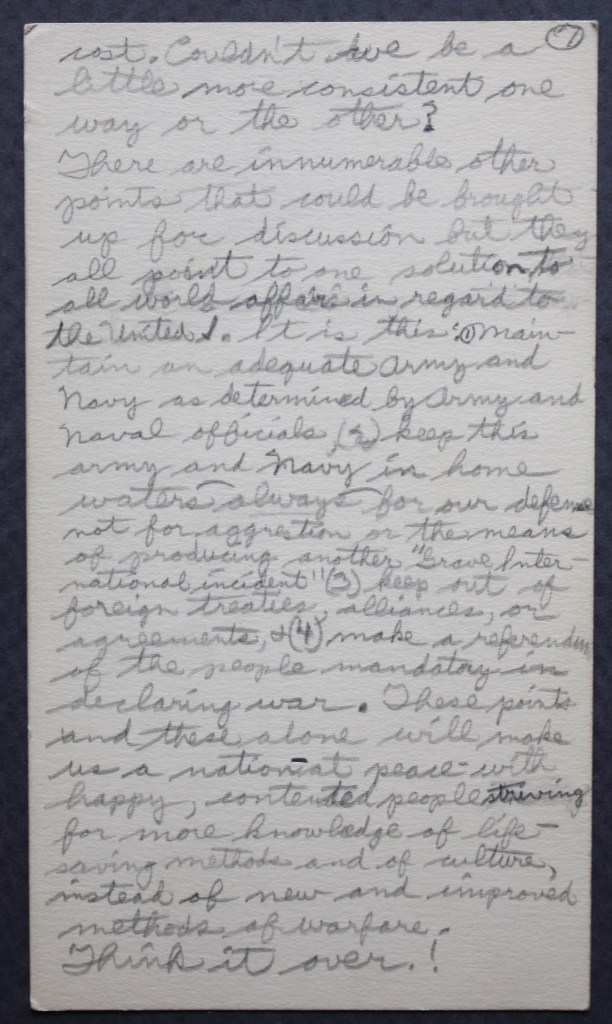 ⑦
cost. Couldn't we be a
little more consistent one
way or the other?
There are innumerable other
points that could be brought
up for discussion but they
all point to one solution to
all world affairs in regard to
the United S. It is this: ① Main-
tain an adequate Army and
Navy as determined by Army and
Naval officials (2) keep this
army and Navy in home
waters always for our defense
not for aggression or the means
of producing another "Grave Inter-
national incident" (3) keep out of
foreign treaties, alliances, or
agreements, & (4) make a referendum
of the people mandatory in
declaring war. These points
and these alone will make
us a nation-at peace-with
happy, contented people striving
for more knowledge of life-
saving methods and of culture,
instead of new and improved
methods of warfare.
Think it over.!